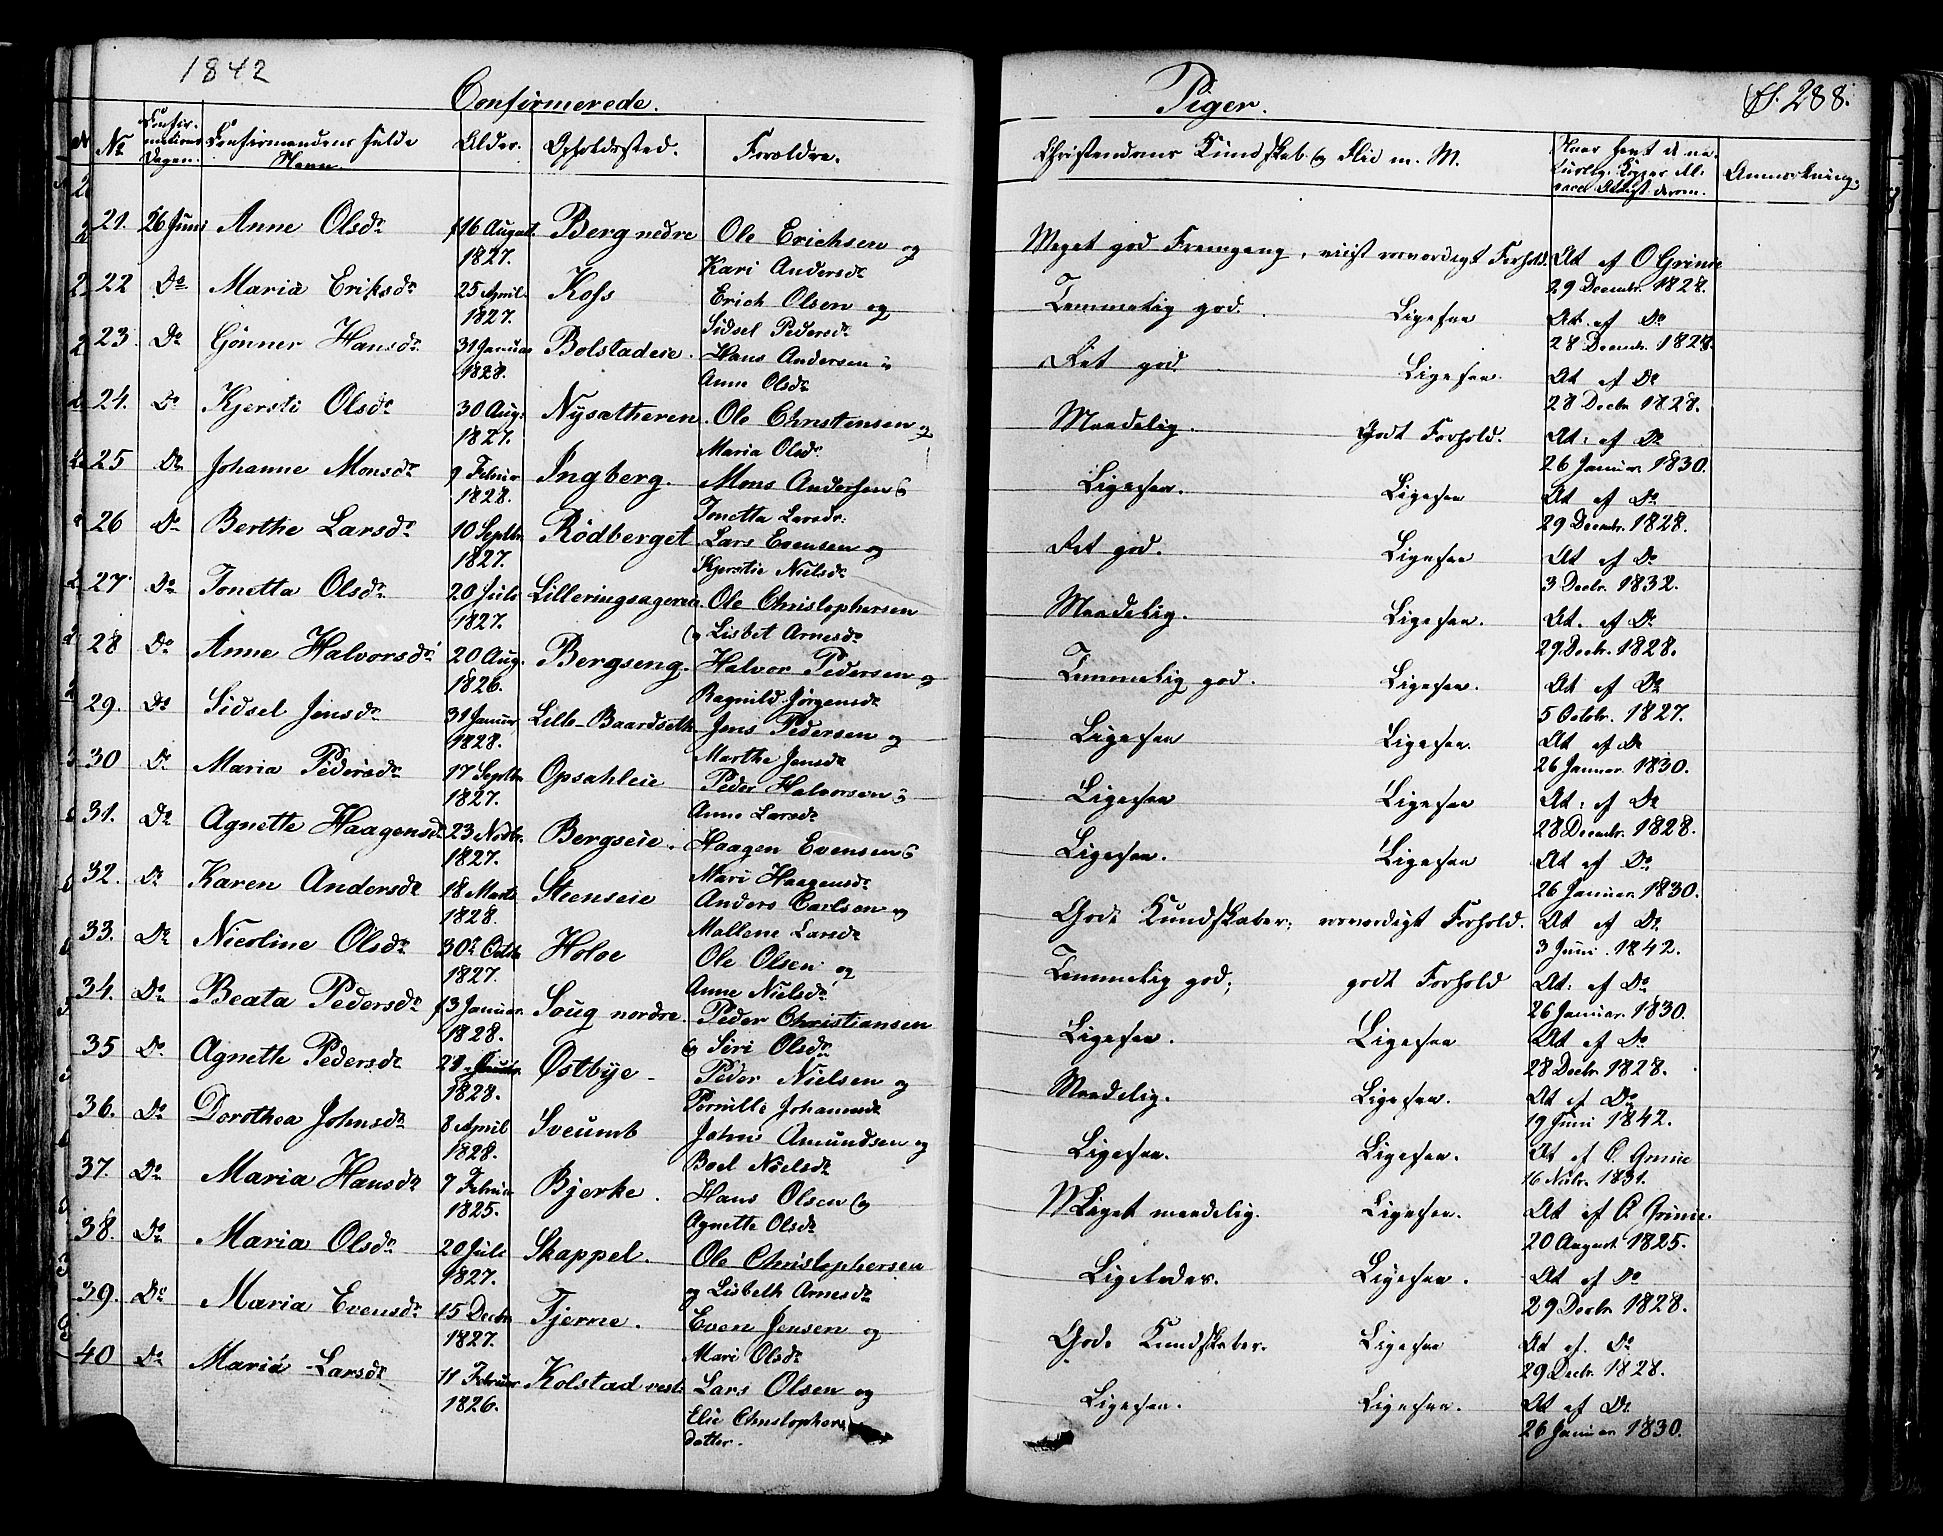 1842
Confirmerede.
Piger.
288.
No
Confir-
mations
Dagen.
Confirmandens fulde
Navn.
Alder.
Opholdssted.
Forældre.
Christendoms Kundskab og Flid m. M.
Anmærkning.
21. 26 Juni Anne Olsdr 16 August Berg nedre Ole Erichsen og Meget god Fremgang, Forhold. At. af O Grine
1827. Kari Andersdr 29 Decembr. 1828.
22 Do Maria Eriksdr 25 April Koss Erich Olsen og Temmelig god. Ligesaa At. af Do
1827. Sidsel Pedersdr 28 Decembr. 1828.
23. Do Gönner Hansdr 31 Januar Bolstadeie. Hans Andersen Ret god Ligesaa. At af Do
1828. Anne Olsdr 28 Decbr 1828.
24. Do Kjersti Olsdr 30 Aug. Nysætheren. Ole Christensen og Maadelig. Godt Forhold. At. af Do
1827. Maria Olsdr 26 Januar 1830.
25 Do Johanne Monsdr 9 Februar Ingberg. Mons Andersen Ligesaa. Ligesaa At af Do
1828. Tonetta Larsdr. 29 Decembr. 1828.
26 Do Berthe Larsdr 10 Septbr Rödberget Lars Evensen og Ret god. Ligesaa At af Do
1827. Kjerstie Nielsdr 3 Decbr. 1832.
27 Do Tonetta Olsdr 20 Juli Lilleringsageren Ole Christophersen Maadelig. Ligesaa. At. af Do
1827. og Lisbet Arnesdr 29 Decbr. 1828.
28 Do Anne Halvorsdr 20 Aug. Bergseng. Halvor Pedersen og Temmelig god. Ligesaa. At af Do
1826. Ragnild Jörgensdr 5 Octobr. 1827.
29. Do Sidsel Jensdr 31 Januar Lille-Baardseth Jens Pedersen og Ligesaa Ligesaa. At af Do
1828. Marthe Jensdr 26 Januar. 1830.
30 Do Maria Pedersdr 17 Septbr Opsahleie Peder Halvorsen Ligesaa Ligesaa At. af Do
1827. Anne Larsdr 28 Decembr. 1828.
31. Do Agnette Haagensdr 23 Novbr. Bergseie. Haagen Evensen Ligesaa. Ligesaa At af Do
1827. Mari Haagensdr 26 Januar 1830.
32. Do Karen Andersdr 18 Marts Steenseie Anders Carlsen og Gode Kundskaber, Forhold. At af Do
1828. Mallene Larsdr 3 Juni. 1842.
33. Do Nicoline Olsdr 30 Octbr Holoe Ole Olsen og Temmelig god; godt Forhold At. af Do
1827. Anne Nielsdr 26 Januar. 1830.
34. Do Beata Pedersdr 13 Januar. Saug nordre. Peder Christiansen Ligesaa. Ligesaa At af Do
1828. og Siri Olsdr 28 Decbr. 1828.
35 Do Agnette Pedersdr Østbye Peder Nielsen og Maadelig. Ligesaa. At af Do
1828. Pernille Johannsdr 19 Juni 1842.
36. Do Dorothea Johnsdr 8 April Sveumb John Amundsen og Ligesaa. Ligesaa. At af O. Grine
1828. Boel Nielsdr 16 Novbr. 1831.
37. Do Maria Hansdr 7 Februar Bjerke. Hans Olsen og Meget maadelig. Ligesaa. At af O. Grine.
1825. Agnette Olsdr 20 August 1825.
38. Do Maria Olsdr 20 Juli Skappel. Ole Christophersen Ligeledes. Ligesaa. At af Do
1827. og Lisbeth Arnesdr 29 Decbr 1828.
39. Do Maria Evensdr 15 Decbr Tjerne. Even Jensen og Gode Kundskaber. Ligesaa At af. Do
1827. Mari Olsdr 29 Decbr. 1828.
40 Do Maria Larsdr 11 Februar Kolstad vest. Lars Olsen og Ligesaa. Ligesaa. At af Do
1826. Elie Christophers 26 Januar 1830.
datter.